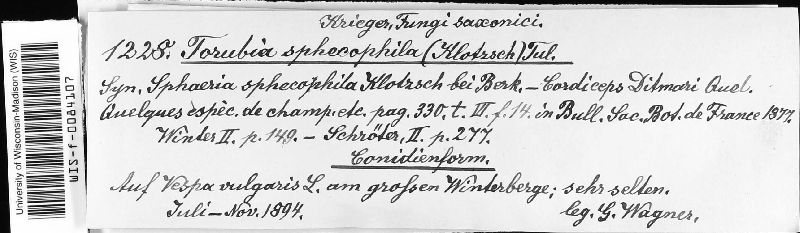 University of Wisconsin-Madison (WIS)
WIS-f-0004107
Krieger, Fungi saxonici.
1228. Torubia sphecophila (Klotzsch) Tul.
Syn. Sphaeria sphecophila Klotzsch bei Berk. – Cordiceps Ditmari Quel.
Quelques espêc. de champ. etc. pag. 330. t. III. f. 14. in Bull. Soc. Bot. de France 1877.
Winter II. p. 149. – Schröter, II. p. 277.
Conidienform.
Auf Vespa vulgaris L. am grossen Winterberge; sehr selten.
Juli – Nov. 1894.
leg. G. Wagner.